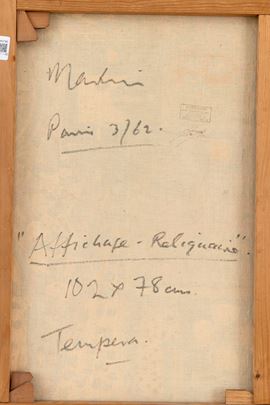 Paris 3/62.
"Affichage-Reliquaire".
102 x 78 cm.
Tempera.